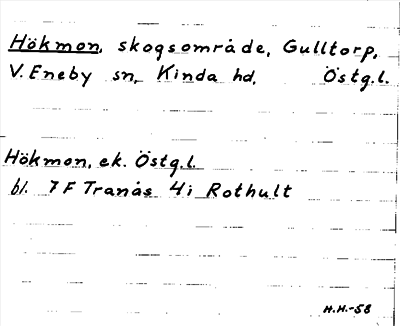 Hökmon, skogsområde, Gulltorp,
V. Eneby sn, Kinda hd, Östg.l.
Hökmon, ek. Östg.l.
bl. 7F Tranås 4i Rothult
H.H.-58